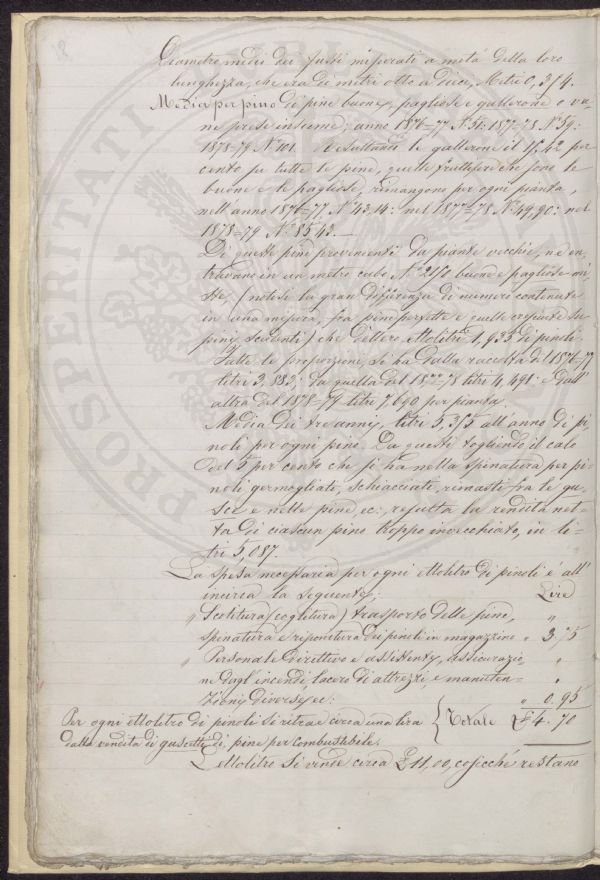 Diametro medio dei fusti misurati a metà della loro
lunghezza, che era di metri otto a dieci, Metri 0,354.
Media per pino di pine buone, pagliose e gallerone o va-
ne prese insieme; anno 1876=77 N.° 51: 1877=78 N.° 59:
1878-79 N.° 101. Resultando le gallerone il 15,42 per
cento su tutte le pine, quelle fruttifere che sono le
buone e le pagliose, rimangono per ogni pianta,
nell'anno 1876=77 N.° 43,14: nel 1877=78 N.° 49,90: nel
1878=79 N.° 85,43.—
Di queste pine provenienti da piante vecchie, ne en-
travano in un metro cubo N.° buone e pagliose mi-
ste, (notisi la gran differenza di numeri contenuta
in una misura, fra pine perfette e quelle cresciute su
pini scadenti) che dettero ettolitri 1,935 di pinoli.
Fatte le proporzioni, si ha dalla raccolta del 1876=77
litri 3,883; da quella del 1877=78 litri 4,491: e dall'
altra del 1878=79 litri 7,690 per pianta.
Media dei tre anni, litri 5,355 all'anno di pi-
noli per ogni pino. Da questi togliendo il calo
del 5 per cento che si ha nella spinatura per pi-
noli germogliati, schiacciati, rimasti fra le gu-
scie e nelle pine, ec:, resulta la rendita net-
ta di ciascun pino troppo invecchiato, in li-
tri 5,087.
La spesa necessaria per ogni ettolitro di pinoli è all'
incirca la seguente; Lire
" Scotitura (coglitura) trasporto delle pine, "
spinatura e ripositura dei pinoli in magazzino " 3.75
" Personale direttivo e assistente, assicurazio- "
ne dagl'incendi, lacero di attrezzi, e manuten- "
zioni diverse, ec: " 0.95
Per ogni ettolitro di pinoli si ritrae circa una lira { Totale £ 4.70
dalla vendita di guscetti di pine per combustibile.
L'ettolitro si vende circa £ 11,00, cosicchè restano
PROSPERITATI